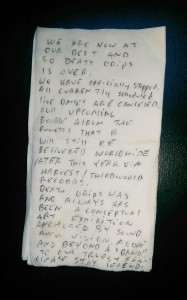 WE ARE NOW AT
OUR BEST AND
SO DEATH GRIPS
IS OVER.
WE HAVE OFFICIALLY STOPPED.
ALL CURRENTLY SCHEDULED
LIVE DATES ARE CANCELED.
OUR UPCOMING
DOUBLE ALBUM THE
POWERS THAT B
WILL STILL BE
DELIVERED WORLDWIDE
LATER THIS YEAR VIA
HARVEST/THIRDWORLDS
RECORDS.
DEATH GRIPS WAS
AND ALWAYS HAS
BEEN A CONCEPTUAL
ART EXHIBITION
ANCHORED BY SOUND
AND VISION. ABOVE
AND BEYOND A "BAND".
TO OUR TRUEST FANS,
PLEASE STAY LEGEND.